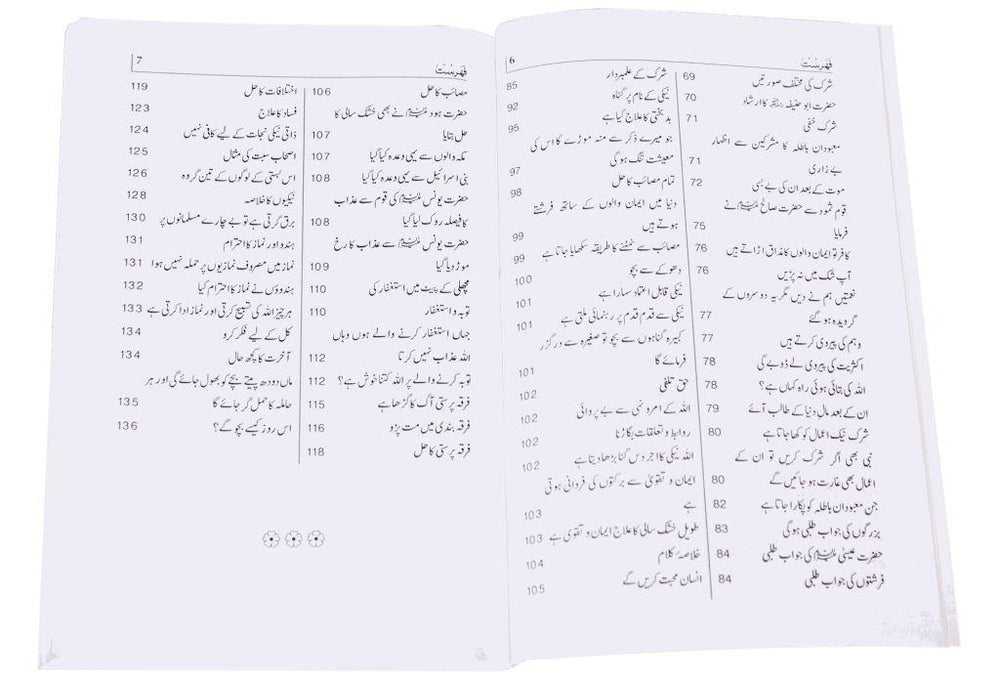 6 فہرست
شرک کی مختلف صورتیں 69
حضرت ابو حنیفہ رحمہ اللہ کا ارشاد 70
شرک خفی 71
معبودان باطلہ کا مشرکین سے اظہار
بے زاری 71
موت کے بعد ان کی بے بسی 72
قوم ثمود سے حضرت صالح علیہ السلام نے
فرمایا 75
کافر تو ایمان والوں کا مذاق اڑاتے ہیں 76
آپ شک میں نہ پڑیں 76
نعمتیں ہم نے دیں مگر یہ دوسروں کے
گرویدہ ہو گئے 77
وہم کی پیروی کرتے ہیں 77
اکثریت کی پیروی لے ڈوبے گی 78
اللہ کی بتائی ہوئی راہ کہاں ہے؟ 78
ان کے بعد مال دنیا کے طالب آئے 79
شرک نیک اعمال کو کھا جاتا ہے 80
نبی بھی اگر شرک کریں تو ان کے
اعمال بھی غارت ہو جائیں گے 80
جن معبودان باطلہ کو پکارا جاتا ہے 82
بزرگوں کی جواب طلبی ہوگی 83
حضرت عیسیٰ علیہ السلام کی جواب طلبی 84
فرشتوں کی جواب طلبی 84
شرک کے علمبردار 85
نیکی کے نام پر گناہ 92
بدبختی کا علاج کیا ہے 95
جو میرے ذکر سے منہ موڑے گا اس کی
معیشت تنگ ہوگی 97
تمام مصائب کا حل 98
دنیا میں ایمان والوں کے ساتھ فرشتے
ہوتے ہیں 99
مصائب سے نمٹنے کا طریقہ سکھایا جاتا ہے 99
دھوکے سے بچو 100
نیکی قابل اعتماد سہارا ہے 101
نیکی سے قدم قدم پر رہنمائی ملتی ہے 101
کبیرہ گناہوں سے بچو تو صغیرہ سے درگزر
فرمائے گا 101
حق تلفی 102
اللہ کے امر و نہی سے بے پروائی 102
روابط و تعلقات بگاڑنا 102
اللہ نیکی کا اجر دس گنا بڑھا دیتا ہے 102
ایمان و تقویٰ سے برکتوں کی فروانی ہوتی
ہے 103
طویل خشک سالی کا علاج ایمان و تقویٰ ہے 103
خلاصہ کلام 104
انسان محبت کریں گے 105
7 فہرست
مصائب کا حل 106
حضرت ہود علیہ السلام نے بھی خشک سالی کا
حل بتایا 107
مکہ والوں سے یہی وعدہ کیا گیا 107
بنی اسرائیل سے یہی وعدہ کیا گیا 108
حضرت یونس علیہ السلام کی قوم سے عذاب
کا فیصلہ روک لیا گیا 108
حضرت یونس علیہ السلام سے عذاب کا رخ
موڑ دیا گیا 109
مچھلی کے پیٹ میں استغفار کی 110
توبہ و استغفار 110
جہاں استغفار کرنے والے ہوں وہاں
اللہ عذاب نہیں کرتا 112
توبہ کرنے والے پر اللہ کتنا خوش ہے؟ 112
فرقہ پرستی آگ کا گڑھا ہے 115
فرقہ بندی میں مت پڑو 116
فرقہ پرستی کا حل 118
اختلافات کا حل 119
فساد کا علاج 123
ذاتی نیکی نجات کے لیے کافی نہیں 124
اصحاب سبت کی مثال 125
اس بستی کے لوگوں کے تین گروہ 126
نیکیوں کا خلاصہ 128
برق گرتی ہے تو بے چارے مسلمانوں پر 130
ہندو اور نماز کا احترام 131
نماز میں مصروف نمازیوں پر حملہ نہیں ہوا 131
ہندوؤں نے نماز کا احترام کیا 132
ہر چیز اللہ کی تسبیح کرتی اور نماز ادا کرتی ہے 133
کل کے لیے فکر کرو 134
آخرت کا کچھ حال 134
ماں دودھ پیتے بچے کو بھول جائے گی اور ہر
حاملہ کا حمل گر جائے گا 135
اس روز کیسے بچو گے؟ 136